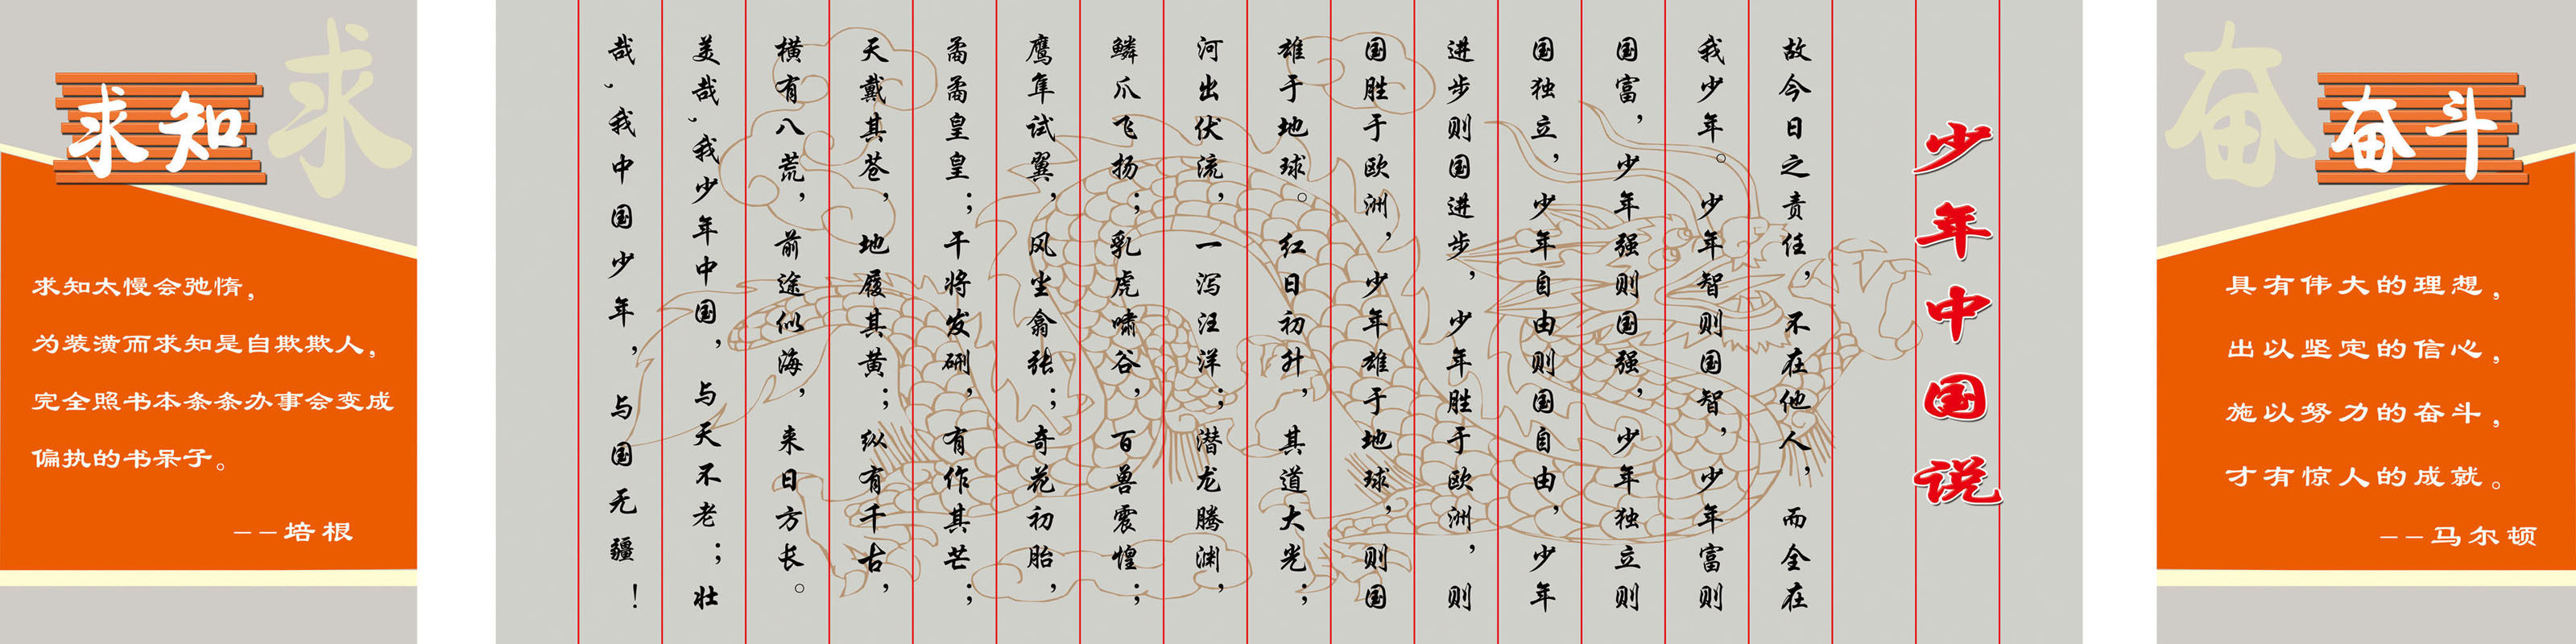 求
求知
求知太慢会弛惰，
为装潢而求知是自欺欺人，
完全照书本条条办事会变成
偏执的书呆子。
--培根
少年中国说
故今日之责任，不在他人，而全在
我少年。少年智则国智，少年富则
国富，少年强则国强，少年独立则
国独立，少年自由则国自由，少年
进步则国进步，少年胜于欧洲，则
国胜于欧洲，少年雄于地球，则国
雄于地球。红日初升，其道大光；
河出伏流，一泻汪洋；潜龙腾渊，
鳞爪飞扬；乳虎啸谷，百兽震惶；
鹰隼试翼，风尘翕张；奇花初胎，
矞矞皇皇；干将发硎，有作其芒；
天戴其苍，地履其黄；纵有千古，
横有八荒，前途似海，来日方长。
美哉,我少年中国，与天不老；壮
哉,我中国少年，与国无疆！
奋
奋斗
具有伟大的理想，
出以坚定的信心，
施以努力的奋斗，
才有惊人的成就。
--马尔顿